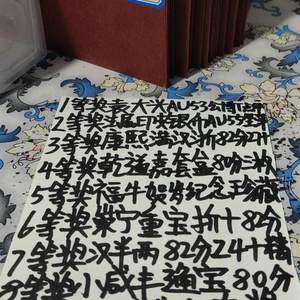 1等奖袁大头AU53公博
2等奖 AU55
3等奖康熙满汉浙82分24
4等奖乾隆嘉套盒80分
5等奖福牛贺岁纪念珍藏
6等奖崇宁重宝折十82分
7等奖汉半两82分24十精
8等奖小咸丰通宝80分